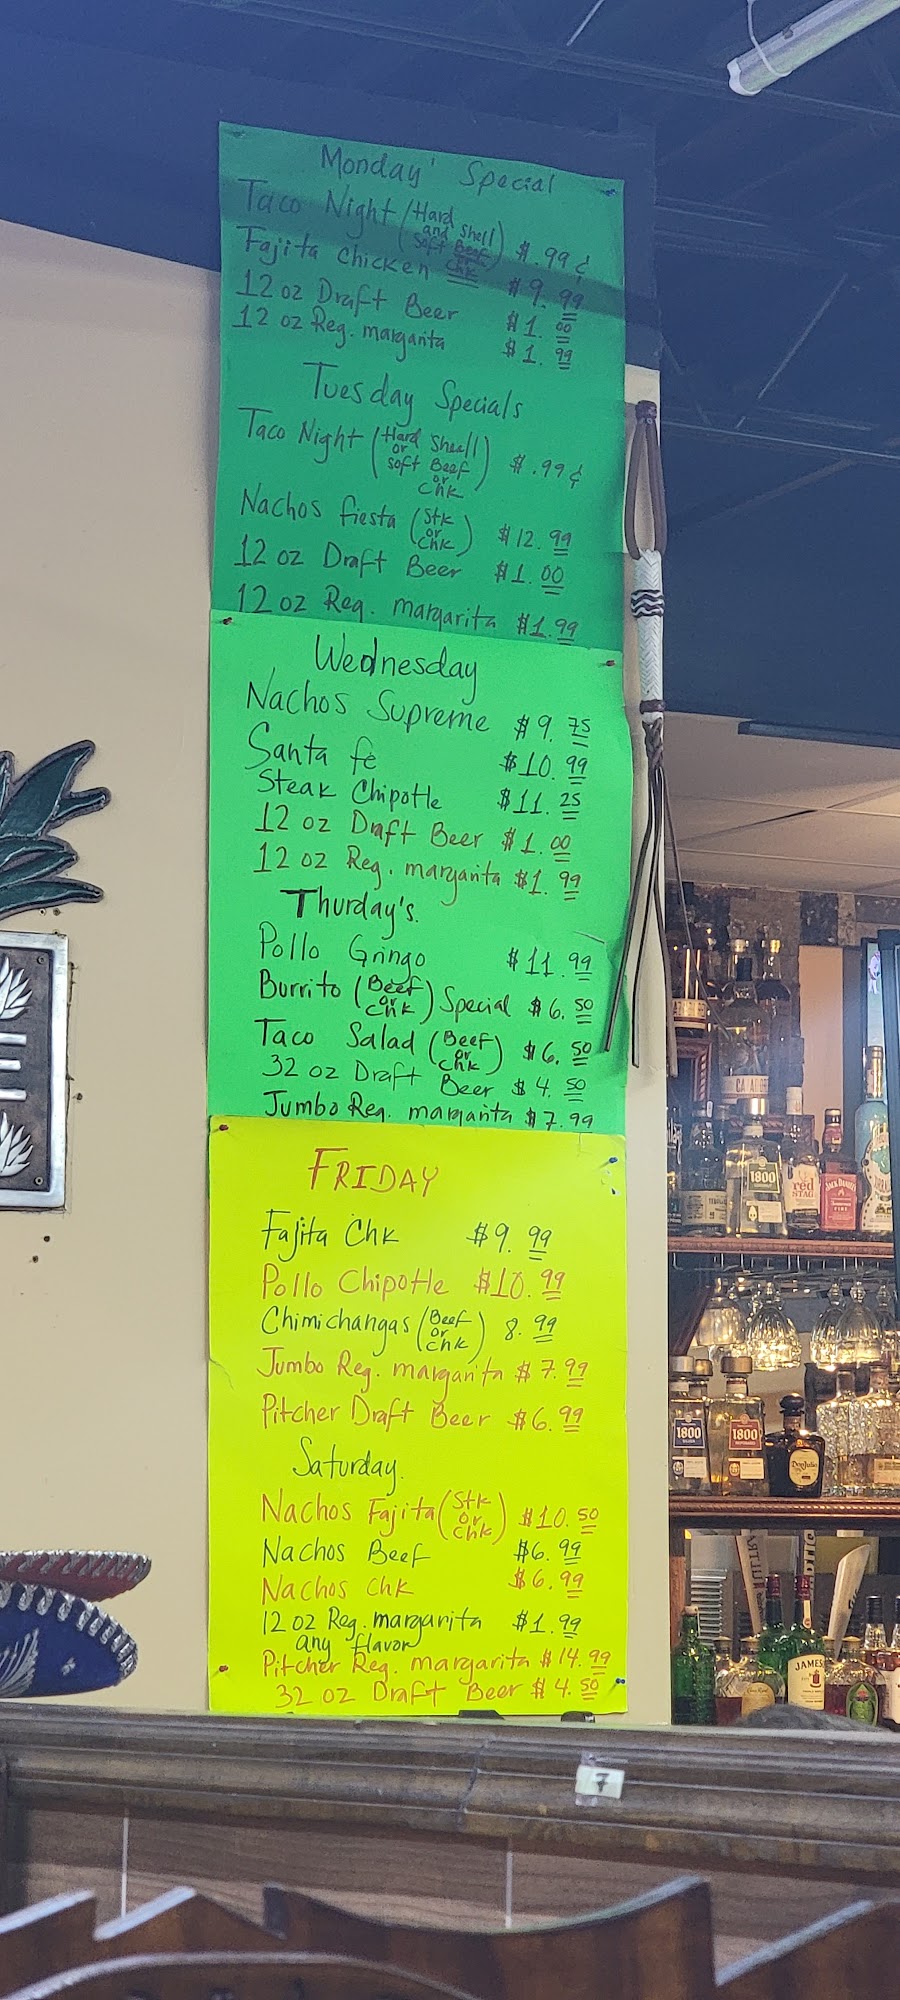 Monday' Special
Taco Night (Hard Shell and Soft Beef or Chk) $ .99¢
Fajita chicken $9.99
12 oz Draft Beer $1.00
12 oz Reg. margarita $1.99
Tuesday Specials
Taco Night (Hard Shell or Soft Beef or Chk) $ .99¢
Nachos fiesta (Stk or Chk) $12.99
12 oz Draft Beer $1.00
12 oz Reg. margarita $1.99
Wednesday
Nachos Supreme $9.75
Santa fe $10.99
Steak Chipotle $11.25
12 oz Draft Beer $1.00
12 oz Reg. margarita $1.99
Thurday's.
Pollo Gringo $11.99
Burrito (Beef or Chk) Special $6.50
Taco Salad (Beef or Chk) $6.50
32 oz Draft Beer $4.50
Jumbo Reg. margarita $7.99
FRIDAY
Fajita Chk $9.99
Pollo Chipotle $10.99
Chimichangas (Beef or Chk) 8.99
Jumbo Reg. margarita $7.99
Pitcher Draft Beer $6.99
Saturday.
Nachos Fajita (Stk or Chk) $10.50
Nachos Beef $6.99
Nachos Chk $6.99
12 oz Reg. margarita $1.99
any flavor
Pitcher Reg. margarita $14.99
32 oz Draft Beer $4.50
1800
red STAG
JACK DANIEL'S
FIRE
1800
1800
Don Julio
JAMES
7